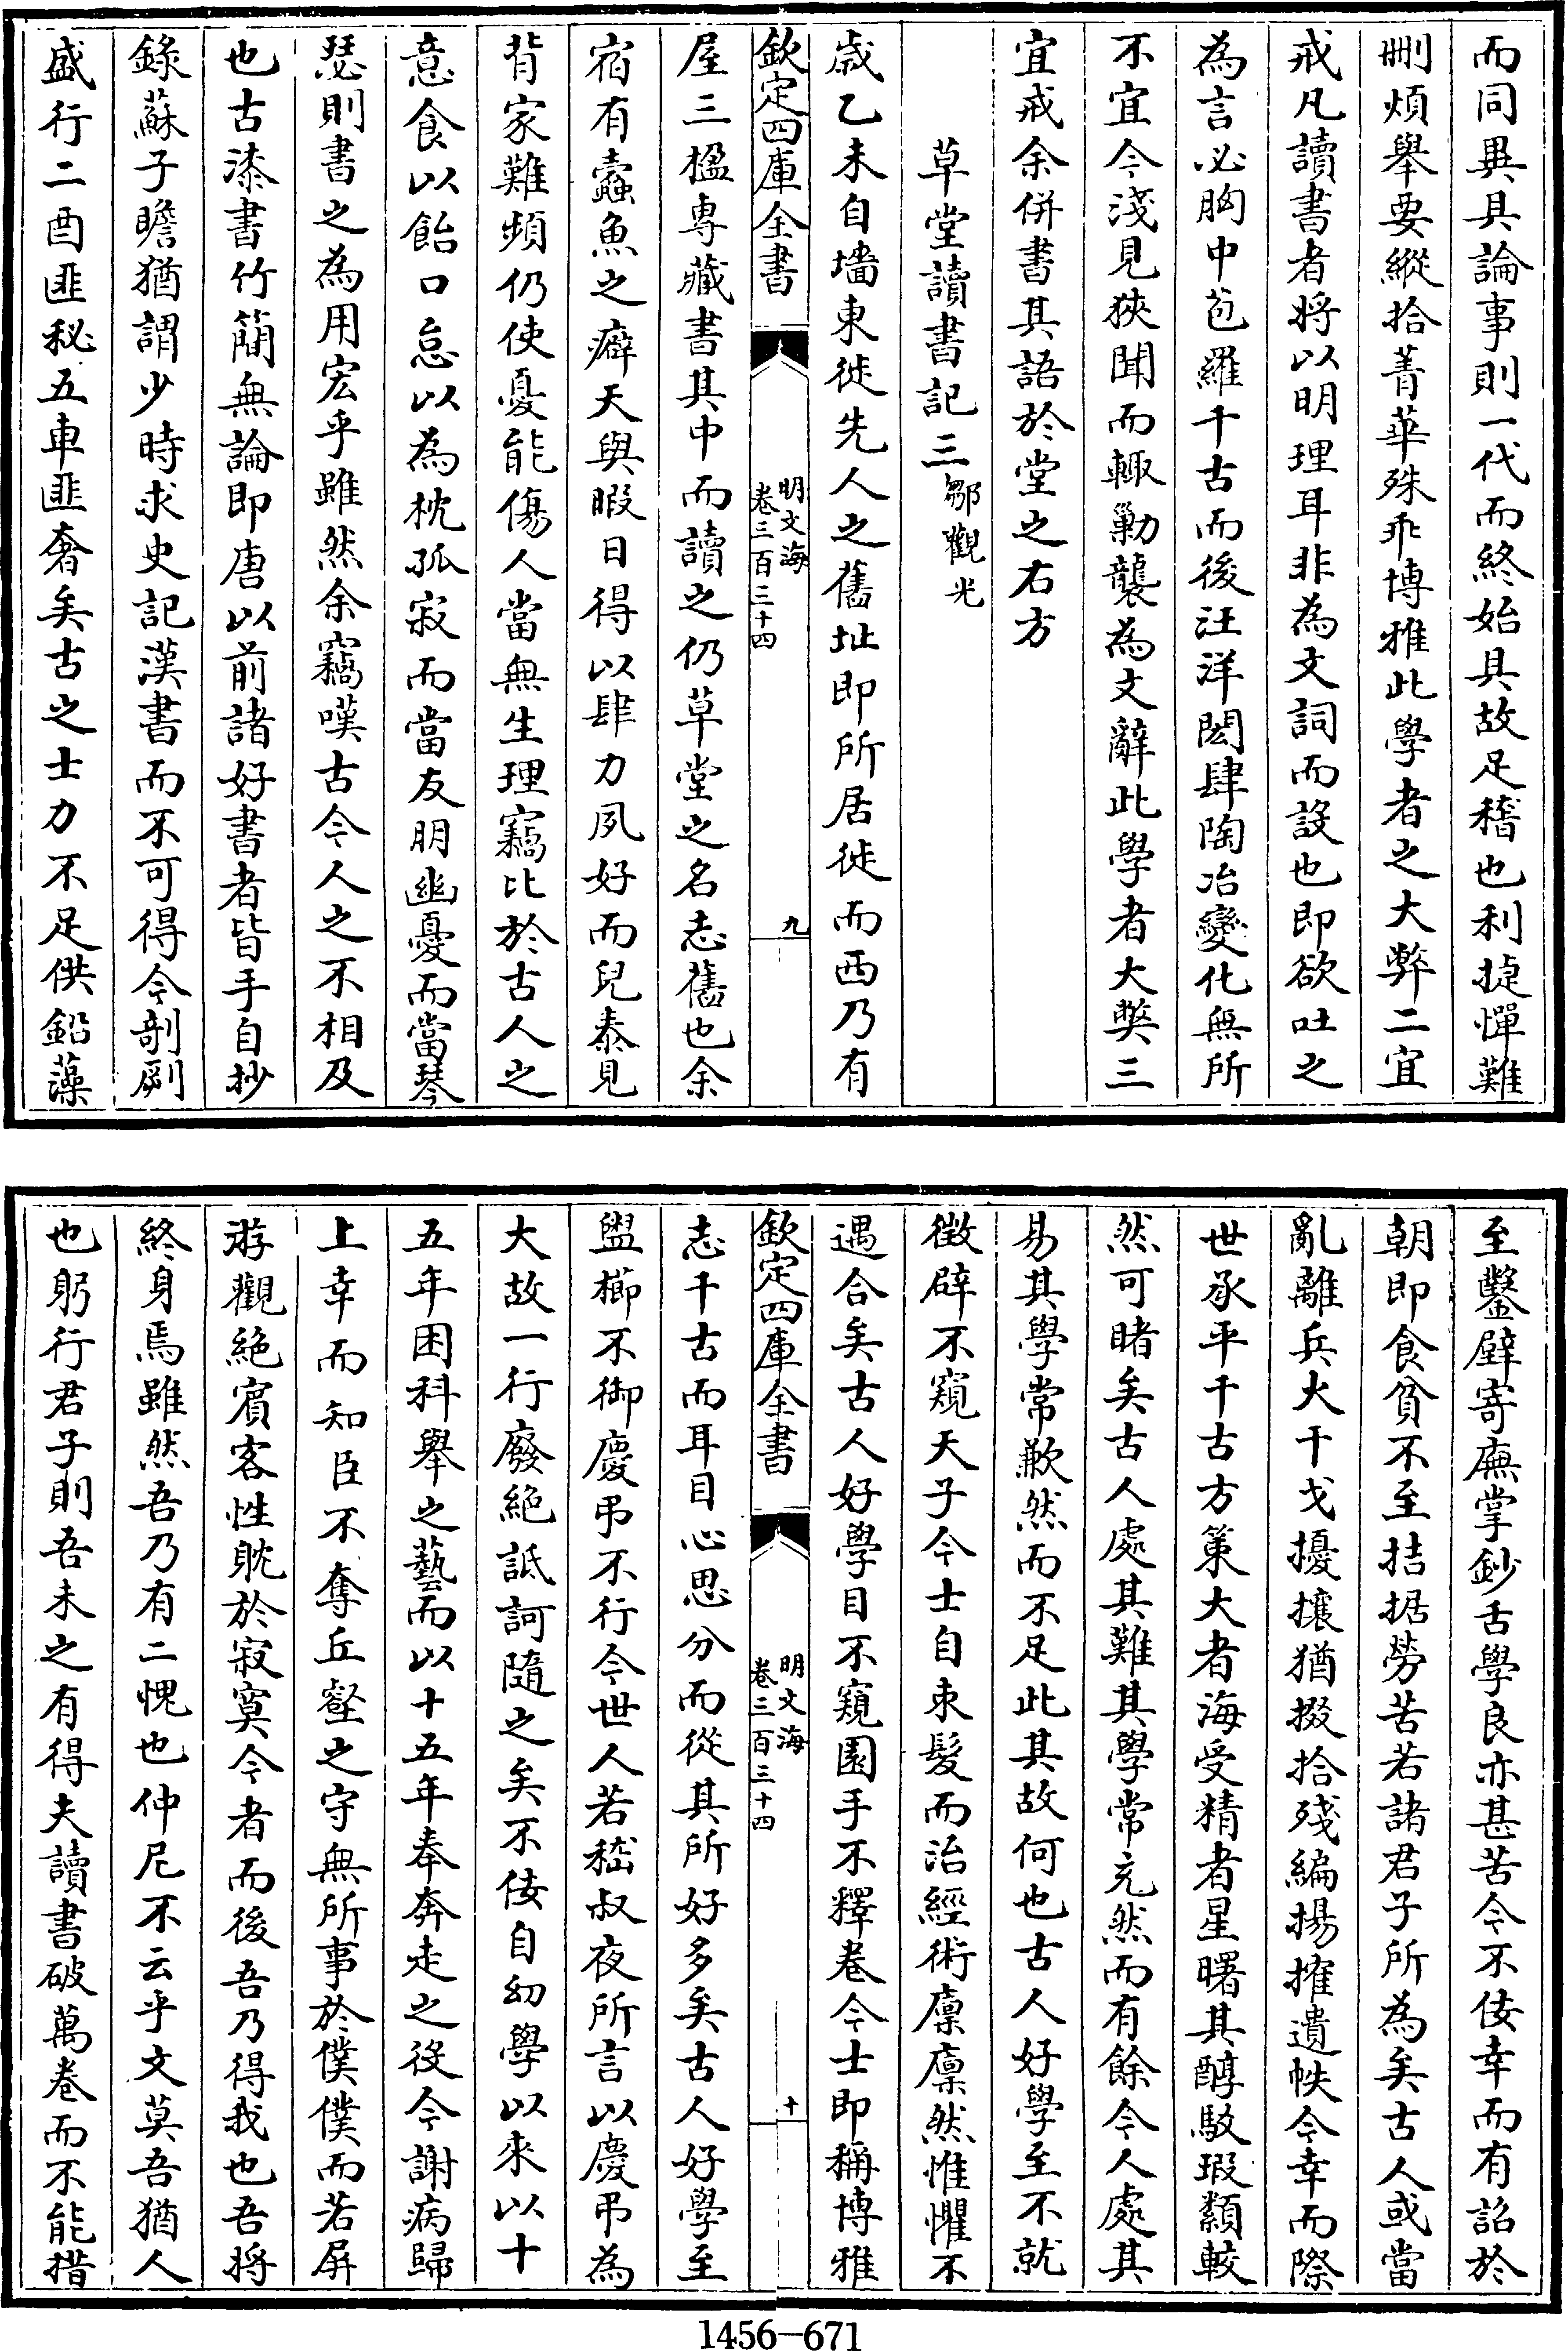 而同異具論事則一代而終始具故足稽也利捷憚難
刪煩舉要縱拾菁華殊乖博雅此學者之大弊二宜
戒凡讀書者將以明理耳非為文詞而設也即欲吐之
為言必胸中苞羅千古而後汪洋閎肆陶冶變化無所
不宜今淺見狹聞而輒勦襲為文辭此學者大獘三
宜戒余併書其語於堂之右方
草堂讀書記三 鄒觀光
歳乙未自墻東徙先人之舊址即所居徙而西乃有
欽定四庫全書
明文海
卷三百三十四
九
屋三楹専藏書其中而讀之仍草堂之名志舊也余
宿有蠧魚之癖天與暇日得以肆力夙好而兒泰見
背家難頻仍使憂能傷人當無生理竊比於古人之
意食以飴口怠以為枕孤寂而當友朋幽憂而當琴
瑟則書之為用宏乎雖然余竊嘆古今人之不相及
也古漆書竹簡無論即唐以前諸好書者皆手自抄
錄蘇子瞻猶謂少時求史記漢書而不可得今剞劂
盛行二酉匪秘五車匪奢矣古之士力不足供鉛藻
至鑿壁寄廡掌鈔舌學良亦甚苦今不佞幸而有詔於
朝即食貧不至拮据勞苦若諸君子所為矣古人或當
亂離兵火干戈擾攘猶掇拾殘編揚搉遺帙今幸而際
世承平千古方策大者海受精者星曙其醇駁瑕纇較
然可睹矣古人處其難其學常充然而有餘今人處其
易其學常歉然而不足此其故何也古人好學至不就
徵辟不窺天子今士自束髮而治經術廩廩然惟懼不
遇合矣古人好學目不窺園手不釋卷今士即稱博雅
欽定四庫全書
明文海
卷三百三十四
十
志千古而耳目心思分而從其所好多矣古人好學至
盥櫛不御慶弔不行今世人若嵇叔夜所言以慶弔為
大故一行廢絶詆訶隨之矣不佞自幼學以來以十
五年困科舉之藝而以十五年奉奔走之役今謝病歸
上幸而知臣不奪丘壑之守無所事於僕僕而若屏
游觀絶賓客性躭於寂寞今者而後吾乃得我也吾將
終身焉雖然吾乃有二愧也仲尼不云乎文莫吾猶人
也躬行君子則吾未之有得夫讀書破萬卷而不能措
1456—671